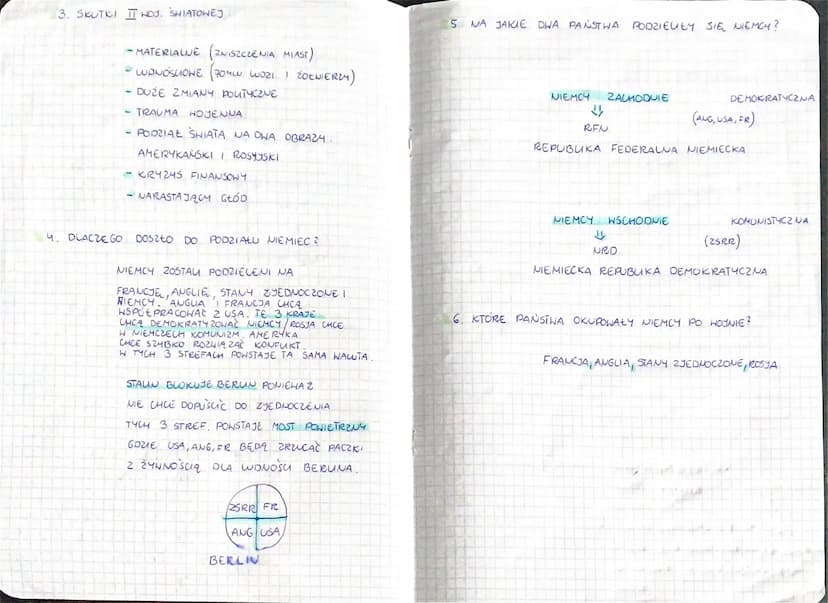 3. SKUTKI II WOJ. ŚWIATOWEJ
- MATERIALNE (ZNISZCZENIA MIAST)
- LUDNOŚCIOWE (70MLN LUDZI I ŻOŁNIERZY)
- DUŻE ZMIANY POLITYCZNE
- TRAUMA WOJENNA
- PODZIAŁ ŚWIATA NA DWA OBRAZY.
AMERYKAŃSKI I ROSYJSKI
- KRYZYS FINANSOWY
- NARASTAJĄCY GŁÓD
4. DLACZEGO DOSZŁO DO PODZIAŁU NIEMIEC?
NIEMCY ZOSTALI PODZIELENI NA
FRANCJĘ, ANGLIĘ, STANY ZJEDNOCZONE I
NIEMCY. ANGLIA I FRANCJA CHCĄ
WSPÓŁPRACOWAĆ Z USA. TE 3 KRAJE
CHCĄ DEMOKRATYZOWAĆ NIEMCY/ROSJA CHCE
W NIEMCZECH KOMUNIZM. AMERYKA
CHCE SZYBKO ROZWIĄZAĆ KONFLIKT.
W TYCH 3 STREFACH POWSTAJE TA SAMA WALUTA.
STALIN BLOKUJE BERLIN PONIEWAŻ
NIE CHCE DOPUŚCIĆ DO ZJEDNOCZENIA
TYCH 3 STREF. POWSTAJE MOST POWIETRZNY
GDZIE USA, ANG, FR BĘDĄ ZRUCAĆ PACZKI
Z ŻYWNOŚCIĄ DLA LUDNOŚCI BERLINA.
ZSRR FR
ANG USA
BERLIN
5. NA JAKIE DWA PAŃSTWA PODZIELIŁY SIĘ NIEMCY?
NIEMCY ZACHODNIE DEMOKRATYCZNA
(ANG, USA, FR)
RFN
REPUBLIKA FEDERALNA NIEMIECKA
NIEMCY WSCHODNIE KOMUNISTYCZNA
(ZSRR)
NRD
NIEMIECKA REPUBLIKA DEMOKRATYCZNA
6. KTÓRE PAŃSTWA OKUPOWAŁY NIEMCY PO WOJNIE?
FRANCJA, ANGLIA, STANY ZJEDNOCZONE, ROSJA